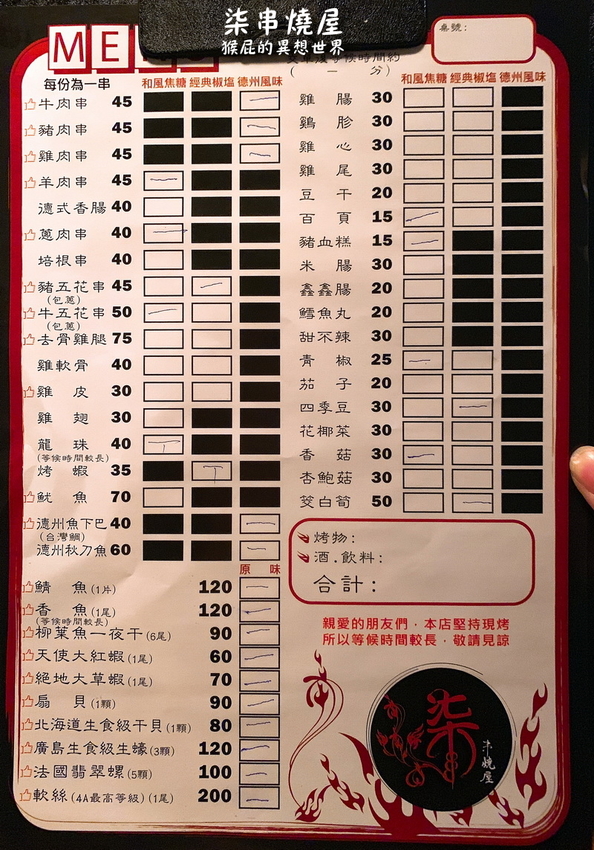 柒串燒屋
猴屁的異想世界
ME
桌號：
每份為一串
和風焦糖 經典椒塩 德州風味
牛肉串 45
豬肉串 45
雞肉串 45
羊肉串 45
德式香腸 40
蔥肉串 40
培根串 40
豬五花串 45
(包蔥)
牛五花串 50
(包蔥)
去骨雞腿 75
雞軟骨 40
雞皮 30
雞翅 30
龍珠 40
(等候時間較長)
烤蝦 35
魷魚 70
德州魚下巴 40
(台灣鯛)
德州秋刀魚 60
原味
鯖魚(1片) 120
香魚(1尾) 120
(等候時間較長)
柳葉魚一夜干(6尾) 90
天使大紅蝦(1尾) 60
絕地大草蝦(1尾) 70
扇貝(1顆) 90
北海道生食級干貝(1顆) 80
廣島生食級生蠔(3顆) 120
法國翡翠螺(5顆) 100
軟絲(4A最高等級)(1尾) 200
等候時間約
( 分)
和風焦糖 經典椒塩 德州風味
雞腸 30
雞胗 30
雞心 30
雞尾 30
豆干 20
百頁 15
豬血糕 15
米腸 30
鑫鑫腸 20
鱈魚丸 20
甜不辣 30
青椒 25
茄子 20
四季豆 30
花椰菜 30
香菇 30
杏鮑菇 30
茭白筍 50
烤物：
酒.飲料：
合計：
親愛的朋友們，本店堅持現烤
所以等候時間較長，敬請見諒
柒
串燒屋